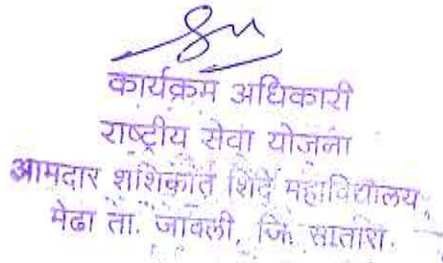 कार्यक्रम अधिकारी
राष्ट्रीय सेवा योजना
आमदार शशिकांत शिंदे महाविद्यालय,
मेढा ता. जावली, जि. सातारा.